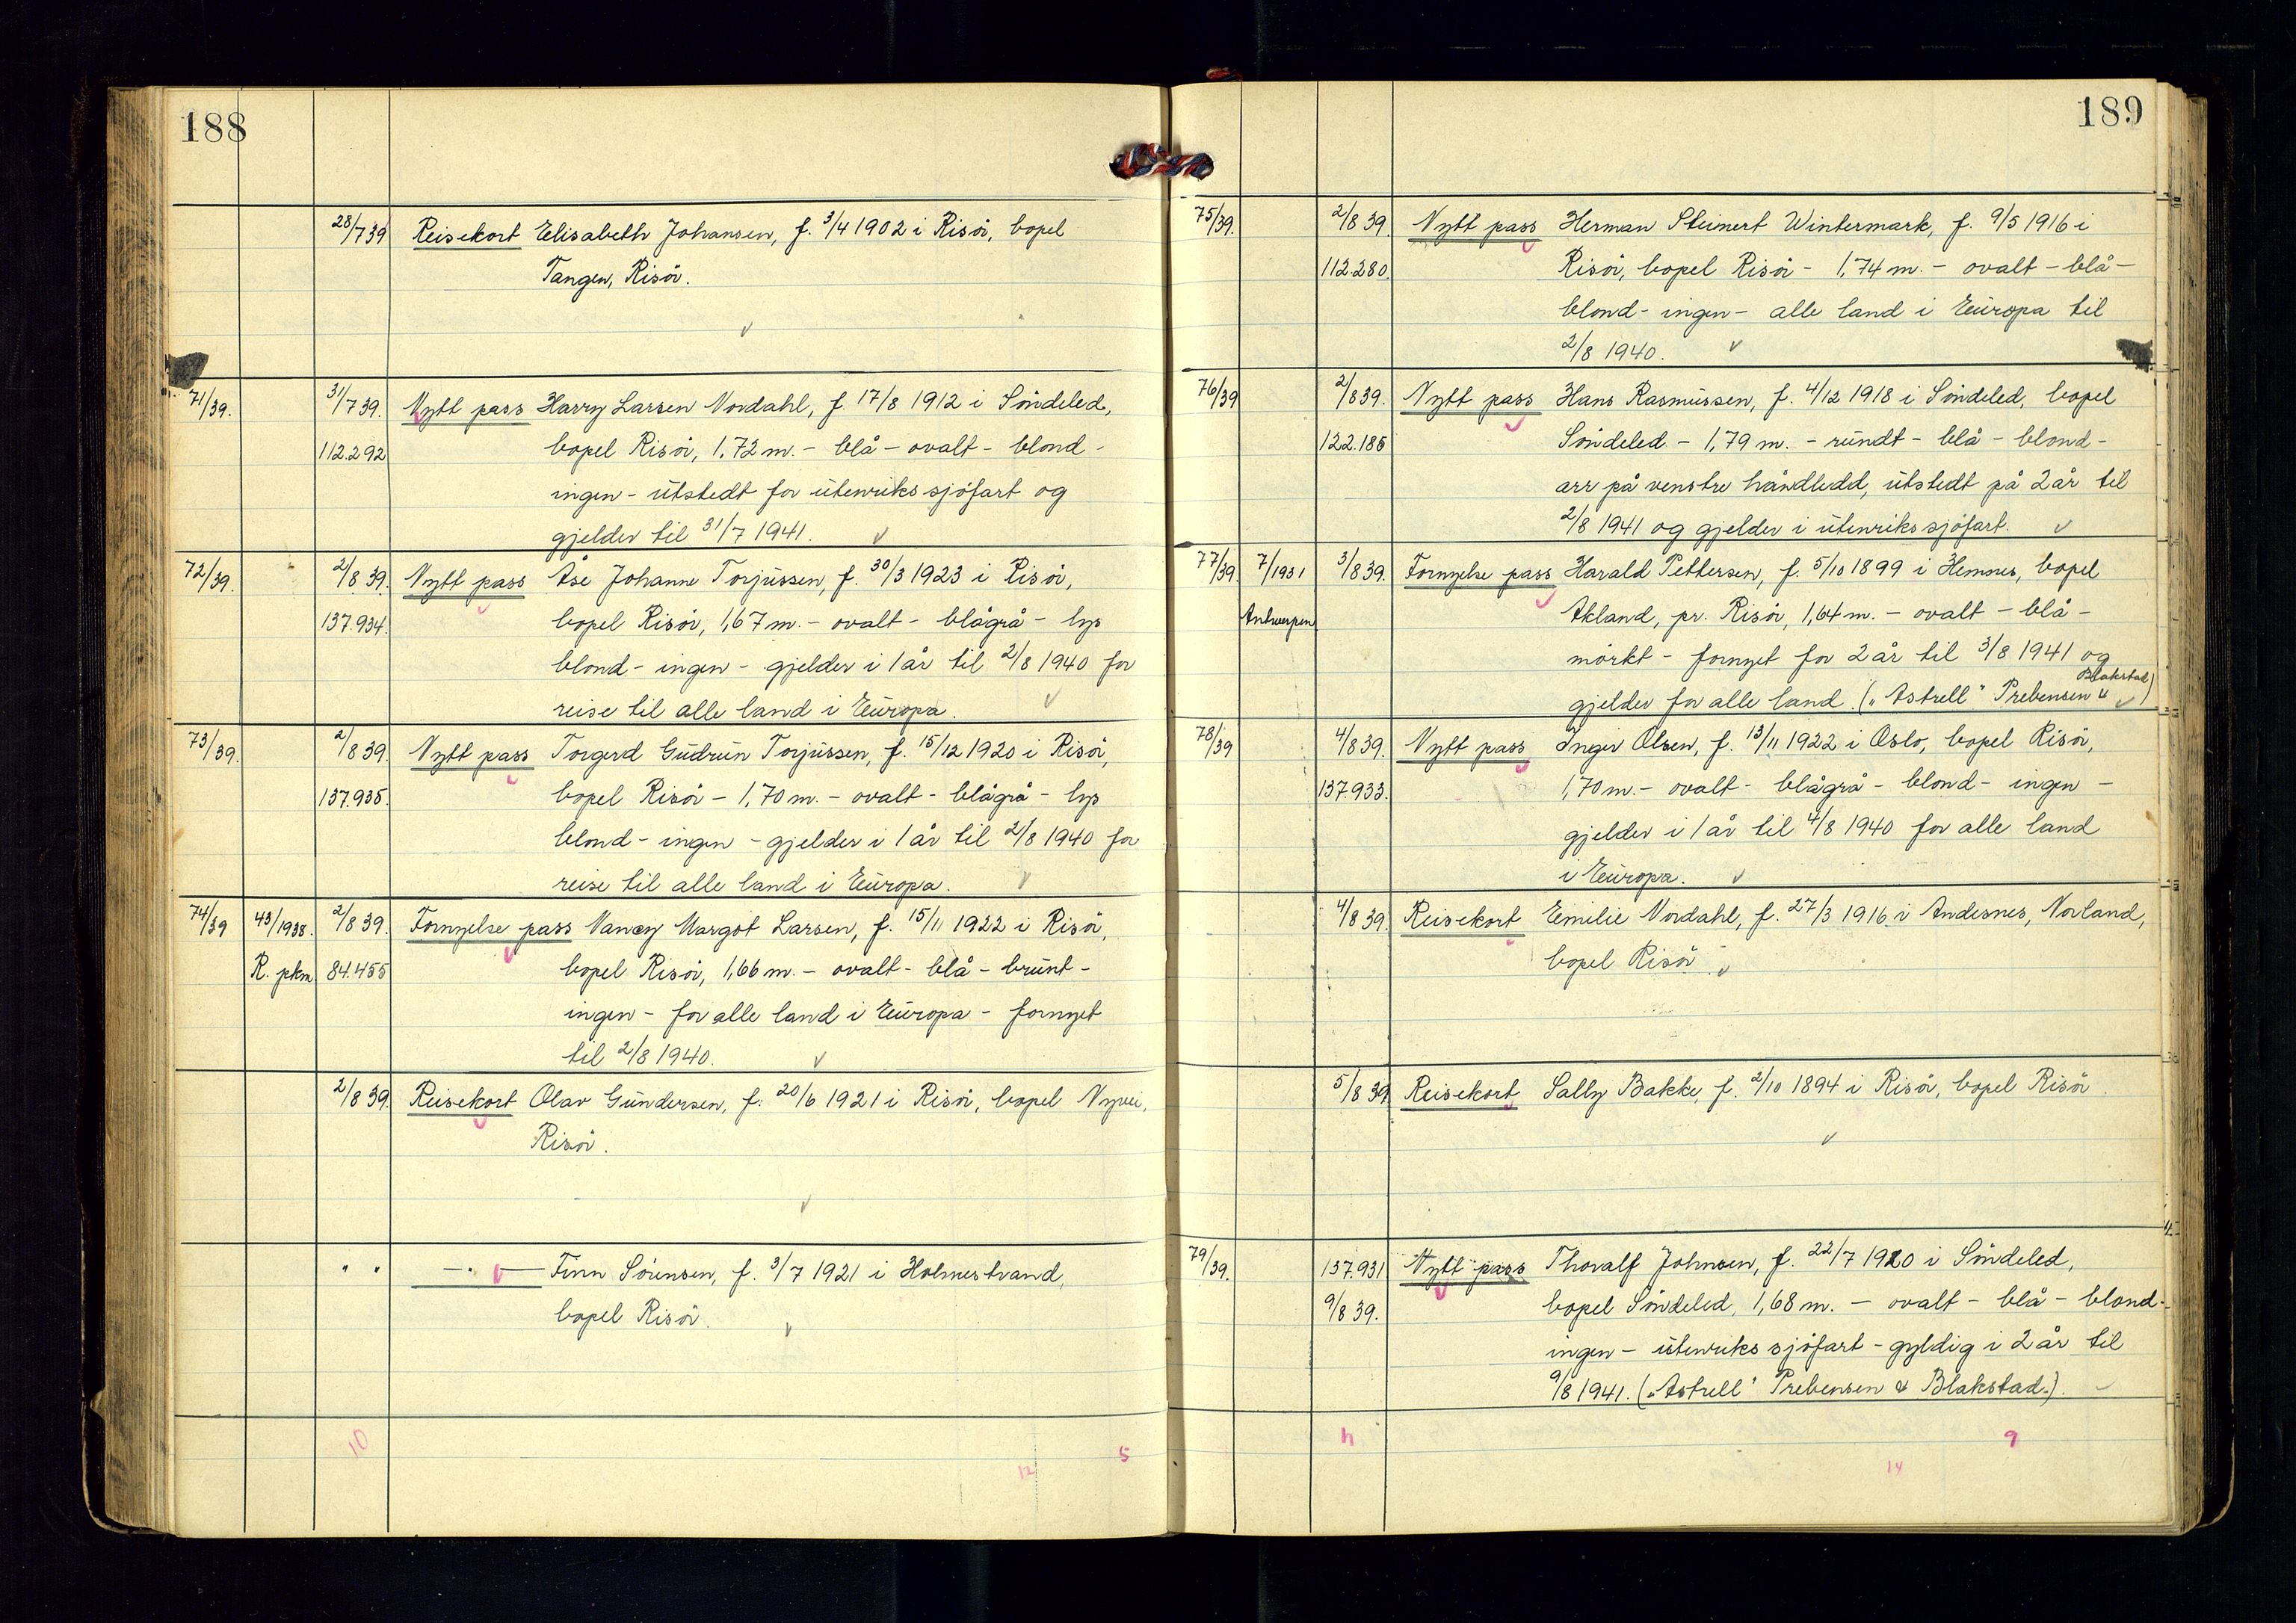 188
28/7 39 Reisekort Elisabeth Johansen, f. 3/4 1902 i Risör, bopel
Tangen, Risör.
71/39. 31/7 39. Nytt pass Harry Larsen Nordahl, f. 17/8 1912 i Söndeled,
112.292 bopel Risör, 1.72 m. - blå - ovalt - blond -
ingen - utstedt for utenriks sjöfart og
gjelder til 31/7 1941.
72/39. 2/8 39. Nytt pass Åse Johanne Torjussen, f. 30/3 1923 i Risör,
137.934. bopel Risör, 1,67 m. - ovalt - blågrå - lys
blond - ingen - gjelder i 1 år til 2/8 1940 for
reise til alle land i Europa.
73/39. 2/8 39. Nytt pass Torgerd Gudrun Torjussen, f. 15/12 1920 i Risör,
137.935. bopel Risör - 1,70 m. - ovalt - blågrå - lys
blond - ingen - gjelder i 1 år til 2/8 1940 for
reise til alle land i Europa.
74/39 43/1938. 2/8 39. Fornyelse pass Nancy Margot Larsen, f. 15/11 1922 i Risör,
R. pkm 84.455 bopel Risör, 1,66 m. - ovalt - blå - brunt -
ingen - for alle land i Europa - fornyet
til 2/8 1940.
2/8 39. Reisekort Olav Gundersen, f. 20/6 1921 i Risör, bopel Nyvei,
Risör.
" " —"— Finn Sörensen, f. 3/7 1921 i Holmestrand,
bopel Risör.
10
12 5
189
75/39. 2/8 39. Nytt pass Herman Steinert Wintermark, f. 9/5 1916 i
112.280. Risör, bopel Risör - 1,74 m. - ovalt - blå -
blond - ingen - alle land i Europa til
2/8 1940.
76/39 2/8 39. Nytt pass Hans Rasmussen, f. 4/12 1918 i Söndeled, bopel
122.185 Söndeled - 1,79 m. - rundt - blå - blond -
arr på venstre håndledd, utstedt på 2 år til
2/8 1941 og gjelder i utenriks sjöfart.
77/39. 7/1931 3/8 39. Fornyelse pass Harald Pettersen, f. 5/10 1899 i Hemnes, bopel
Antwerpen Akland, pr. Risör, 1,64 m. - ovalt - blå -
mörkt - fornyet for 2 år til 3/8 1941 og
gjelder for alle land. („Astrell" Prebensen & Blakstad)
78/39 4/8 39. Nytt pass Inger Olsen, f. 13/11 1922 i Oslo, bopel Risör,
137.933. 1,70 m. - ovalt - blågrå - blond - ingen -
gjelder i 1 år til 4/8 1940 for alle land
i Europa.
4/8 39. Reisekort Emilie Nordahl, f. 27/3 1916 i Andesnes, Norland,
bopel Risör.
5/8 39 Reisekort Sally Bakke, f. 2/10 1894 i Risör, bopel Risör.
79/39. 137.931 Nytt pass Thoralf Johnsen, f. 22/7 1920 i Söndeled,
9/8 39. bopel Söndeled, 1,68 m. - ovalt - blå - blond -
ingen - utenriks sjöfart - gyldig i 2 år til
9/8 1941. („Astrell" Prebensen & Blakstad.)
9
14